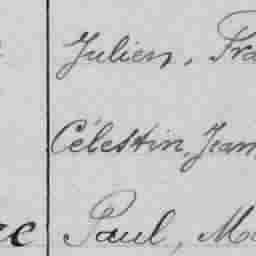 Julien, Fra
Célestin, Jean
ce Paul, Ma